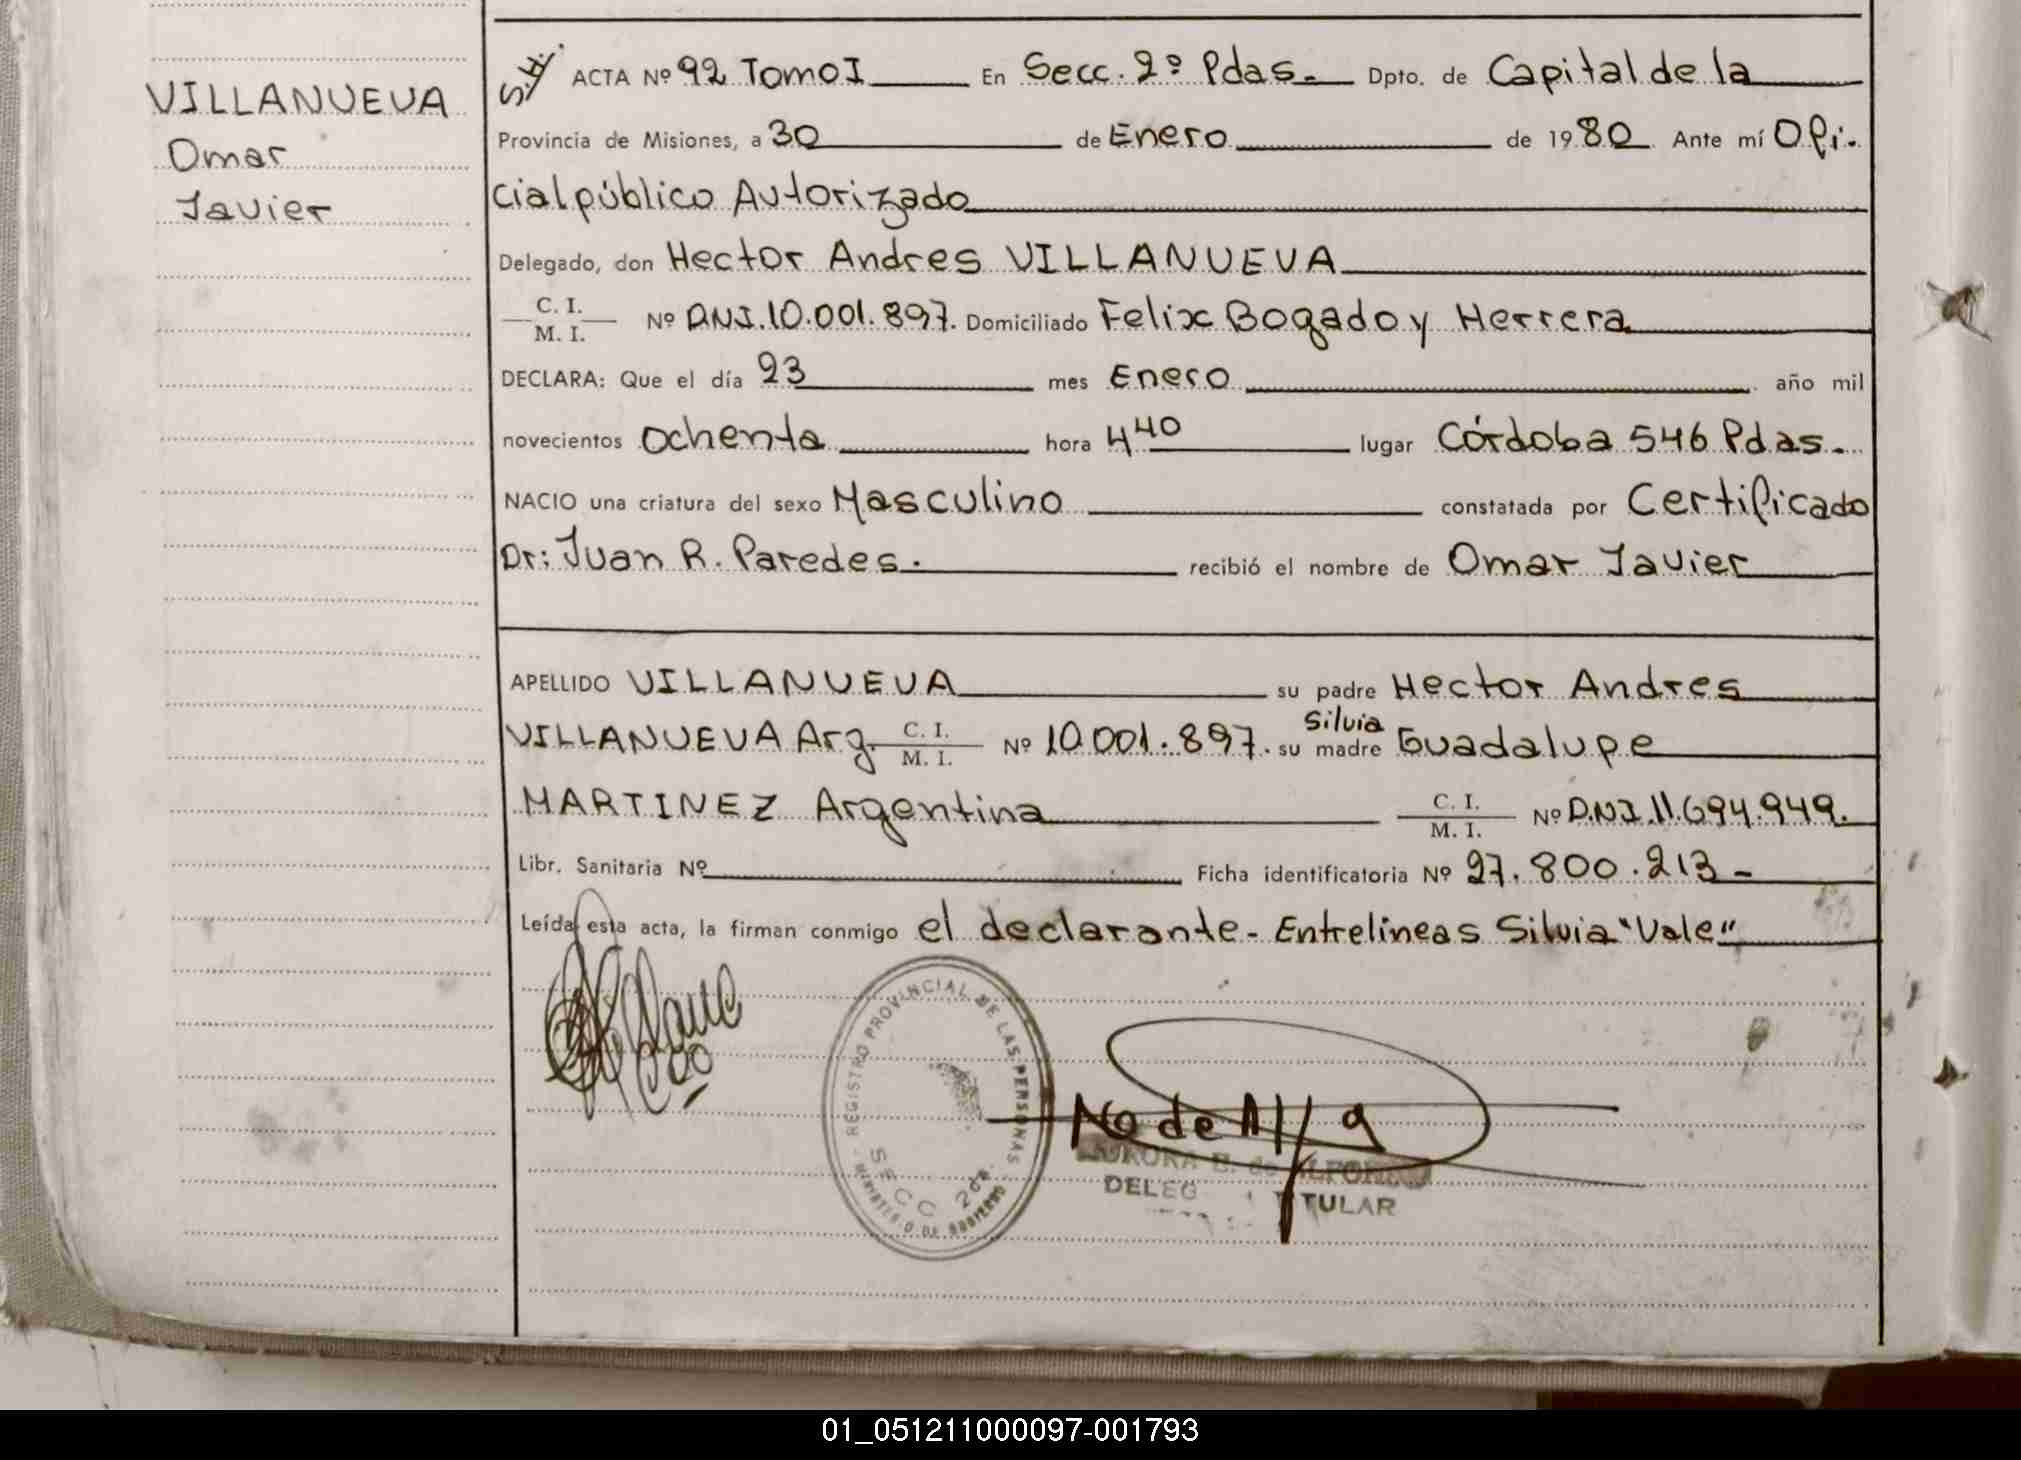 VILLANUEVA
Omar
Javier
S.H. ACTA Nº 92 Tomo I En Secc. 2º Pdas. Dpto. de Capital de la
Provincia de Misiones, a 30 de Enero de 1980 Ante mí Ofi.
cial público Autorizado
Delegado, don Hector Andres VILLANUEVA
C. I.
M. I. Nº D.N.I. 10.001.897. Domiciliado Felix Bogado y Herrera
DECLARA: Que el día 23 mes Enero año mil
novecientos ochenta hora 4 40 lugar Córdoba 546 Pdas.
NACIO una criatura del sexo Masculino constatada por Certificado
Dr: Juan R. Paredes. recibió el nombre de Omar Javier
APELLIDO VILLANUEVA su padre Hector Andres
VILLANUEVA Arg. C. I. M. I. Nº 10.001.897. su madre Silvia Guadalupe
MARTINEZ Argentina C. I. M. I. Nº D.N.I. 11.694.949.
Libr. Sanitaria Nº Ficha identificatoria Nº 27.800.213 -
Leída esta acta, la firman conmigo el declarante - Entrelineas Silvia "Vale"
REGISTRO PROVINCIAL DE LAS PERSONAS
SECC. 2da.
MINISTERIO DE GOBIERNO
TITULAR
01_051211000097-001793